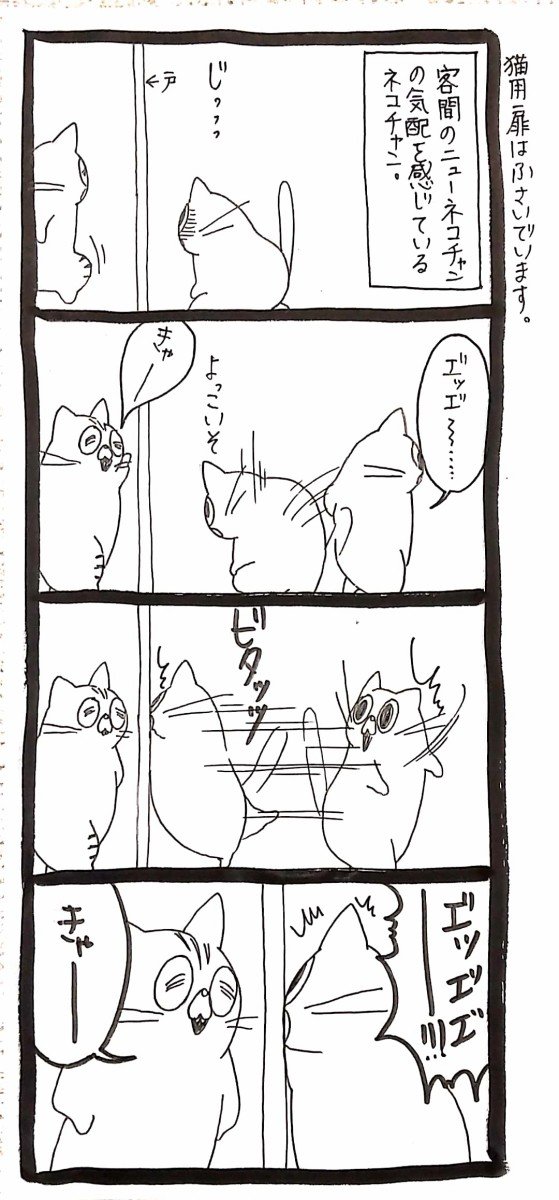 猫用扉はふさいでいます。
客間のニューネコチャン
の気配を感じている
ネコチャン。
じッッッ
←戸
エ゛ッエ゛〜〜……
よっこいそ
きゃー
ビタッッ
エ゛ッエ゛エ゛ー!!!
きゃー